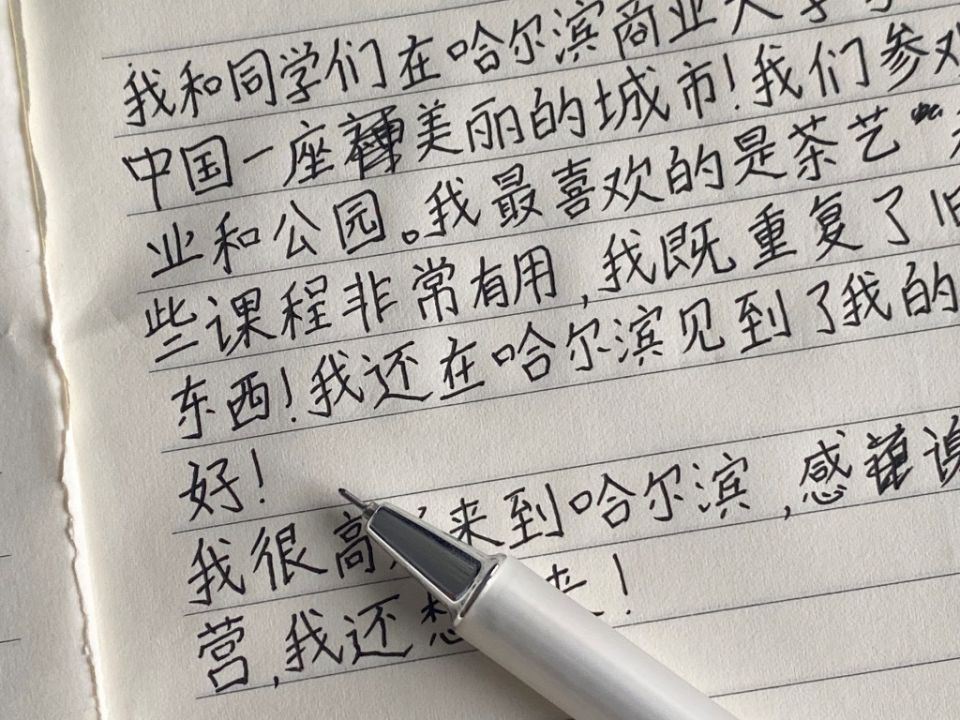 我和同学们在哈尔滨商业大学
中国一座美丽的城市!我们参观
业和公园。我最喜欢的是茶艺
些课程非常有用,我既重复了旧
东西!我还在哈尔滨见到了我的
好!
我很高 来到哈尔滨,感谢
营,我还想 来!